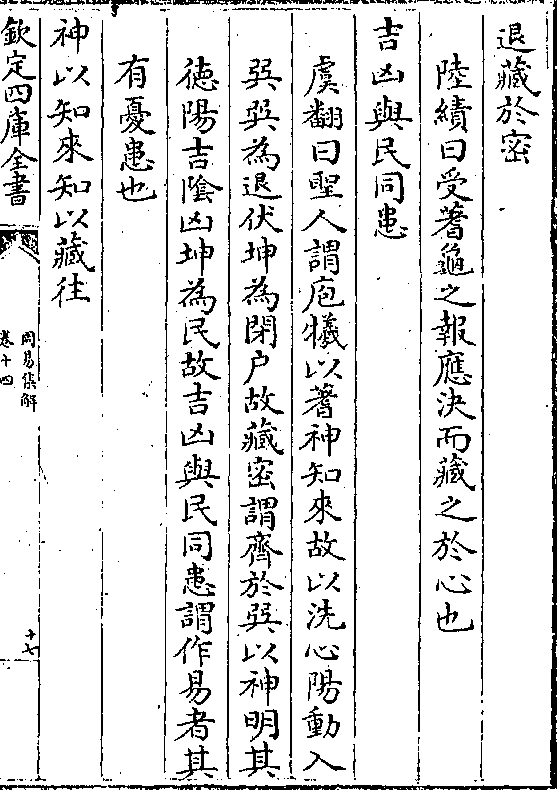 退藏於密
陸績曰受蓍龜之報應決而藏之於心也
吉凶與民同患
虞翻曰聖人謂庖犧以蓍神知來故以洗心陽動入
巽巽為退伏坤為閉户故藏密謂齊於巽以神明其
徳陽吉隂凶坤為民故吉凶與民同患謂作易者其
有憂患也
神以知來知以藏往
欽定四庫全書
周易集解
卷十四
十七